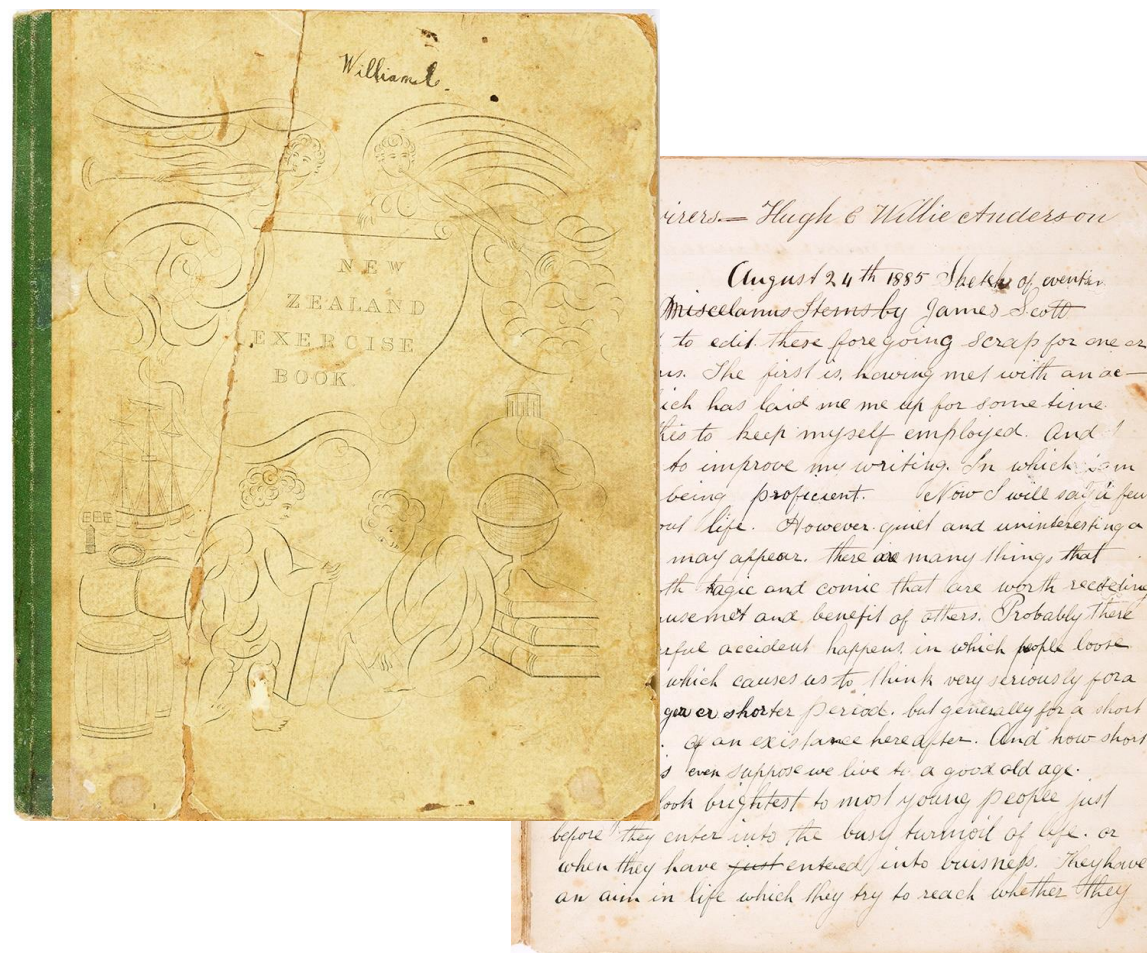 William C.
NEW
ZEALAND
EXERCISE
BOOK.
irers — Hugh & Willie Anderson
August 24th 1885 Sketch of events.
Miscelanus Items by James Scott
to edit these foregoing scrap for one or
us. The first is, having met with an ac-
ich has laid me me up for some time.
his to keep myself employed. And
to improve my writing. In which I am
being proficient. Now I will say a few
out life. However quiet and uninteresting a
may appear, there are many things that
th tagic and comic that are worth
usemet and benefit of others. Probably there
rful accident happens in which people loose
which causes us to think very seriously for a
ger or shorter period. but generally for a short
. of an existance hereafter. And how short
s even suppose we live to a good old age.
look brightest to most young people just
before they enter into the busy turmoil of life. or
when they have just entered, into buisness. They have
an aim in life which they try to reach whether they